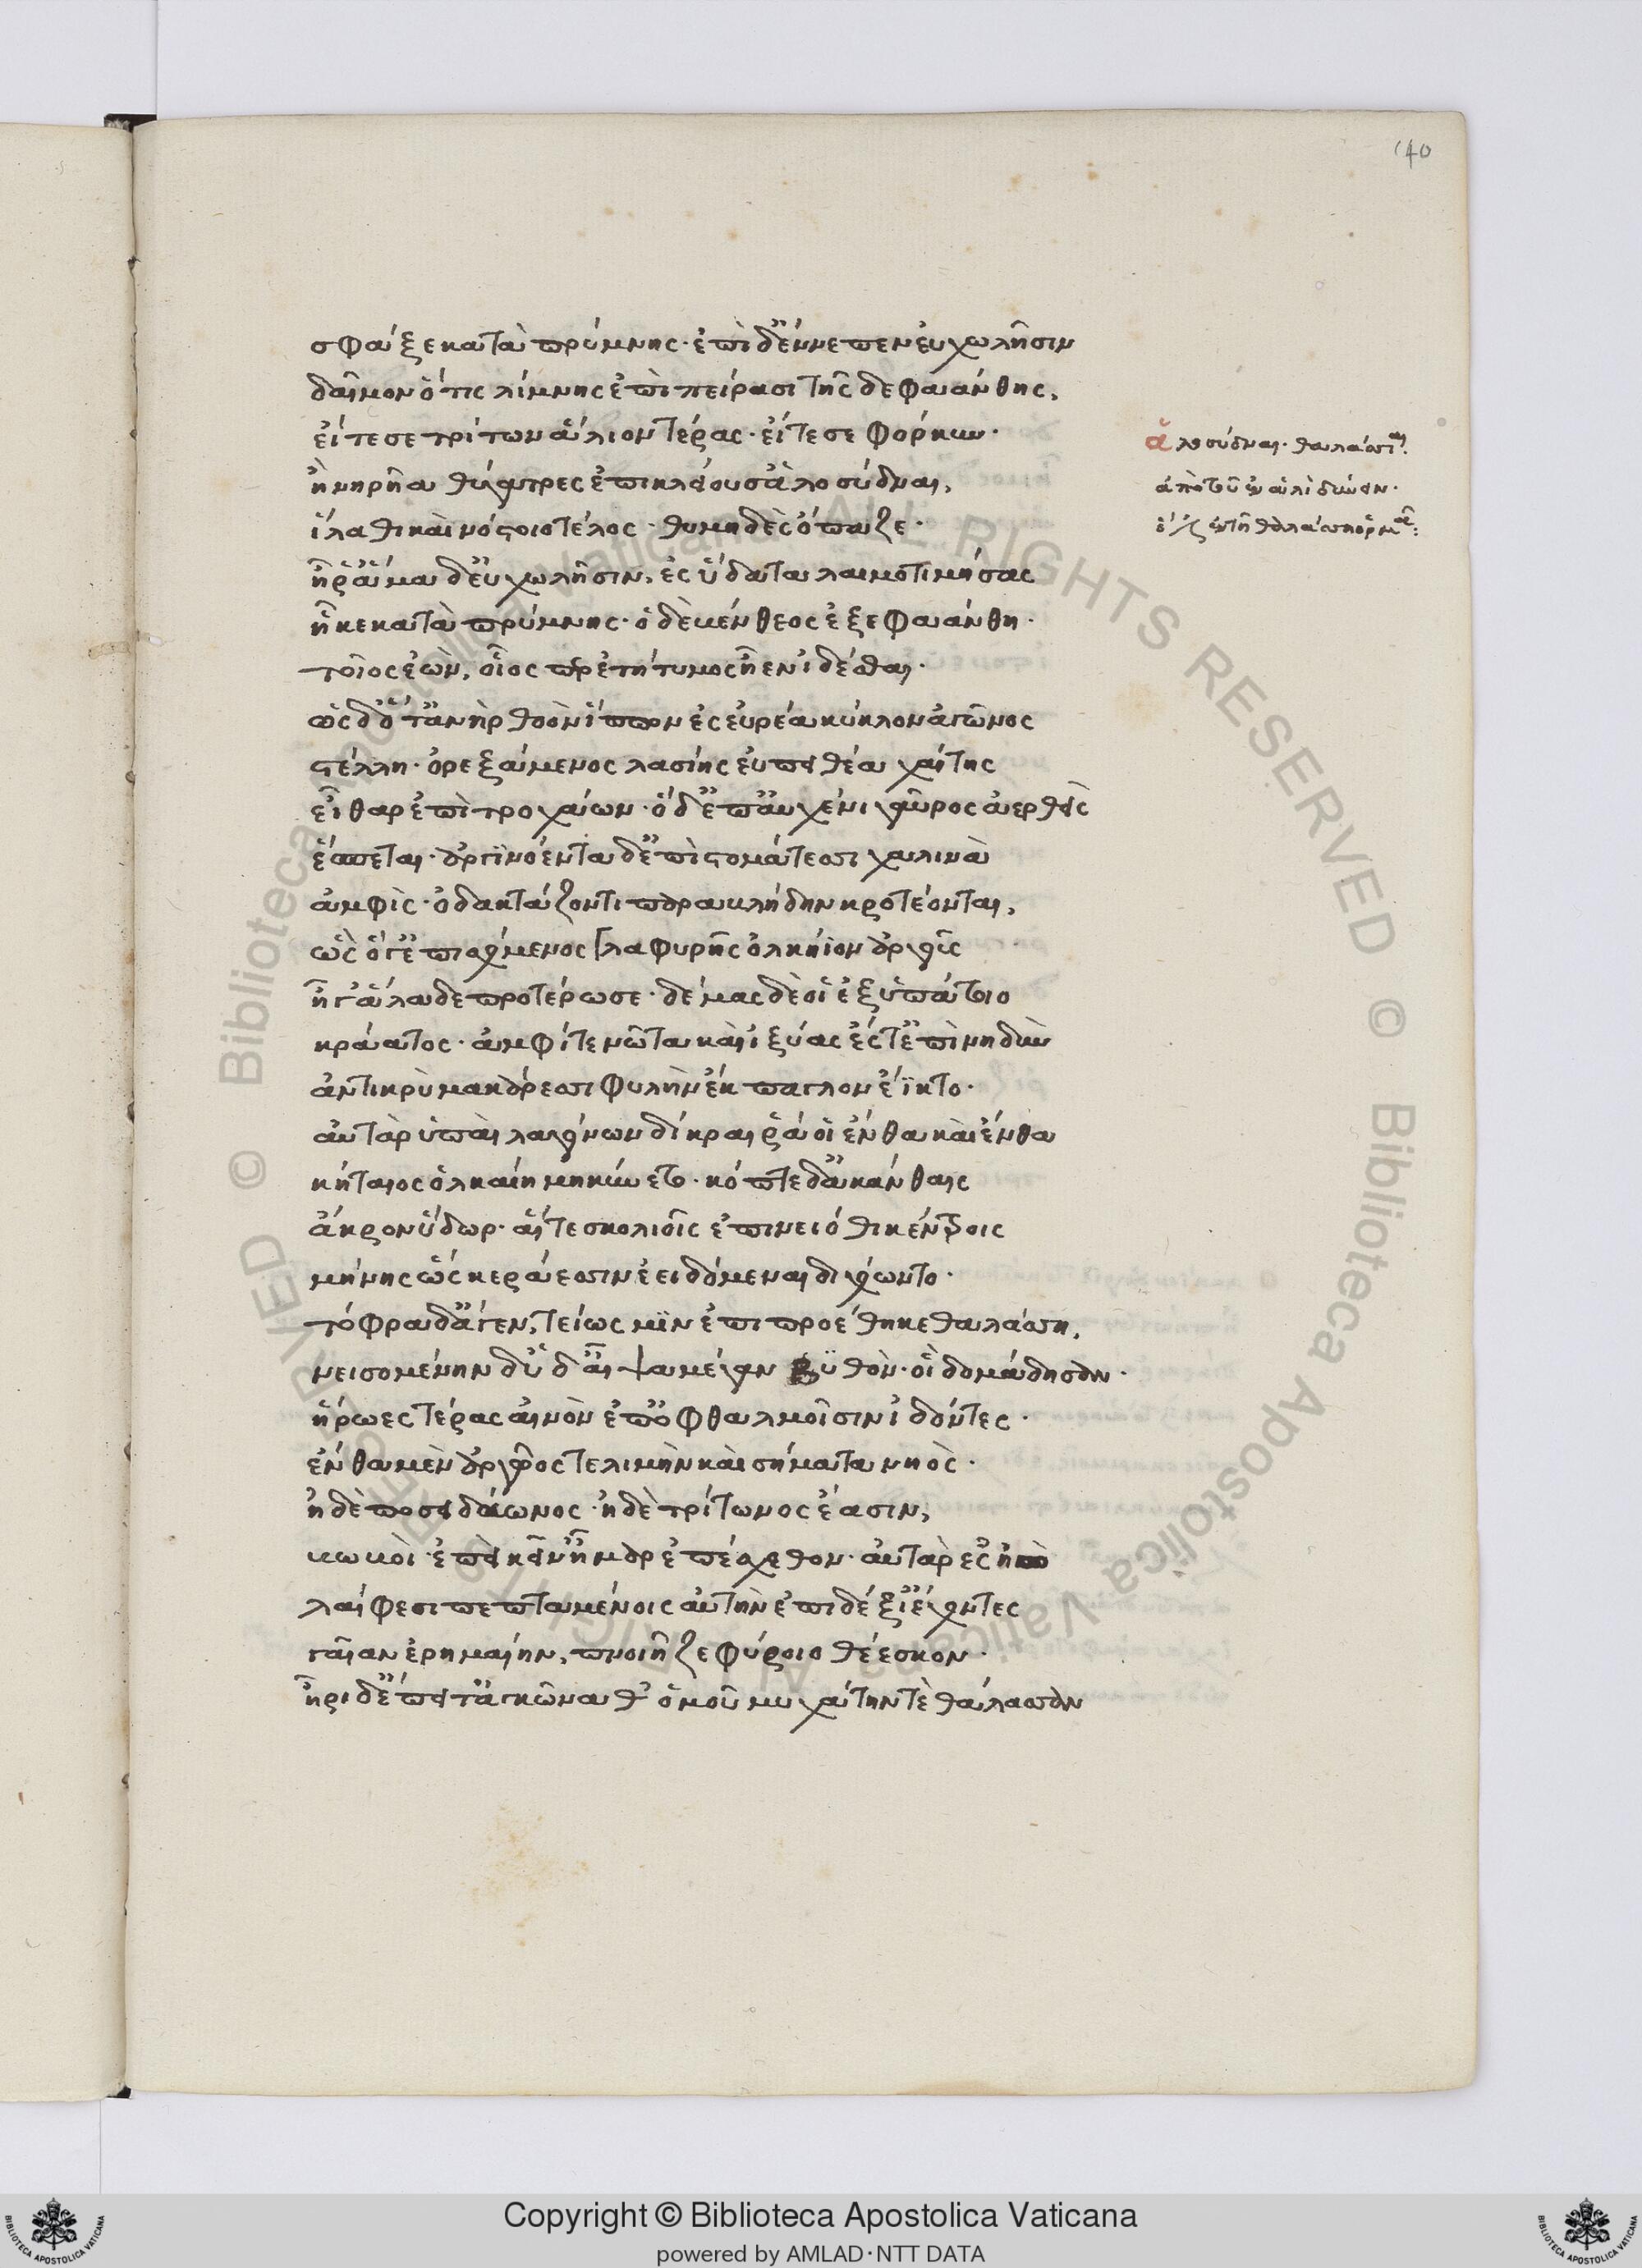 140
σφάξε κατὰ πρύμνης· ἐπὶ δ' ἔννεπεν εὐχωλῇσιν
δαῖμον ὅτις λίμνης ἐπὶ πείρασι τῆσδε φαάνθης,
εἴτε σε τρίτων ἅλιον τέρας· εἴτε σε φόρκυν·
ἢ νηρῆα θύγατρες ἐπικλείουσ' ἁλοσύδναι,
ἵλαθι καὶ νόστοιο τέλος· θυμηδὲς ὄπαζε·
ἦ ῥ' ἅμα δ' εὐχωλῇσιν, ἐς ὕδατα λαιμοτιμήσας
ἧκε κατὰ πρύμνης· ὁ δὲ βένθεος ἐξεφαάνθη·
τοῖος ἐὼν, οἷος περ ἐτήτυμος ἦεν ἰδέσθαι·
ὡς δ' ὅτ' ἀνὴρ θοὸν ἵππον ἐς εὐρέα κύκλον ἀγῶνος
στέλλῃ· ὀρεξάμενος λασίης εὐπειθέα χαίτης
εἶθαρ ἐπιτροχάων· ὁ δ' ἐπ' αὐχένι γαῦρος ἀερθεὶς
ἕσπεται· ἀργινόεντα δ' ἐπὶ στομάτεσσι χαλινὰ
ἀμφὶς· ὀδακτάζοντι παρακλήδην κροτέονται,
ὣς ὅγ' ἐπισχόμενος γλαφυρῆς ὁλκήιον ἀργοῦς
ἦγ' ἅλαδε προτέρωσε· δέμας δέ οἱ ἐξ ὑπάτοιο
κράατος· ἀμφί τε νῶτα καὶ ἰξύας ἔς τ' ἐπὶ νηδὺν
ἀντικρὺ μακάρεσσι φυὴν ἔκπαγλον ἔϊκτο·
αὐτὰρ ὑπαὶ λαγόνων δίκραιρά οἱ ἔνθα καὶ ἔνθα
κήτεος ὁλκαίη μηκύνετο· κόπτε δ' ἀκάνθαις
ἄκρον ὕδωρ· αἵτε σκολιοῖς ἐπινειόθι κέντροις
μήνης ὡς κεράεσσιν ἐειδόμεναι διχόωντο·
τόφρα δ' ἄγεν, τείως μιν ἐπιπροέηκε θαλάσσῃ,
νεισομένην δῦ δ' αἶψα μέγαν βυθόν· οἱ δ' ὁμάδησαν·
ἥρωες τέρας αἰνὸν ἐπ' ὀφθαλμοῖσιν ἰδόντες·
ἔνθα μὲν ἀργῷός τε λιμὴν καὶ σήματα νηὸς·
ἠδὲ ποσειδάωνος· ἠδὲ τρίτωνος ἔασιν,
βωμοὶ· ἐπεὶ κεῖν' ἦμαρ ἐπέσχεθον· αὐτὰρ ἐς ἠῶ
λαίφεσι πεπταμένοις αὐτὴν ἐπιδέξι' ἔχοντες
γαῖαν ἐρημαίην, πνοιῇ ζεφύροιο θέεσκον·
ἦρι δ' ἔπειτ' ἀγκῶνα θ' ὁμοῦ μυχάτην τε θάλασσαν
ἁλοσύδναι· θαλάσσιαι·
ἀπὸ τοῦ ἐν ἁλὶ δύνειν·
Copyright © Biblioteca Apostolica Vaticana
powered by AMLAD·NTT DATA